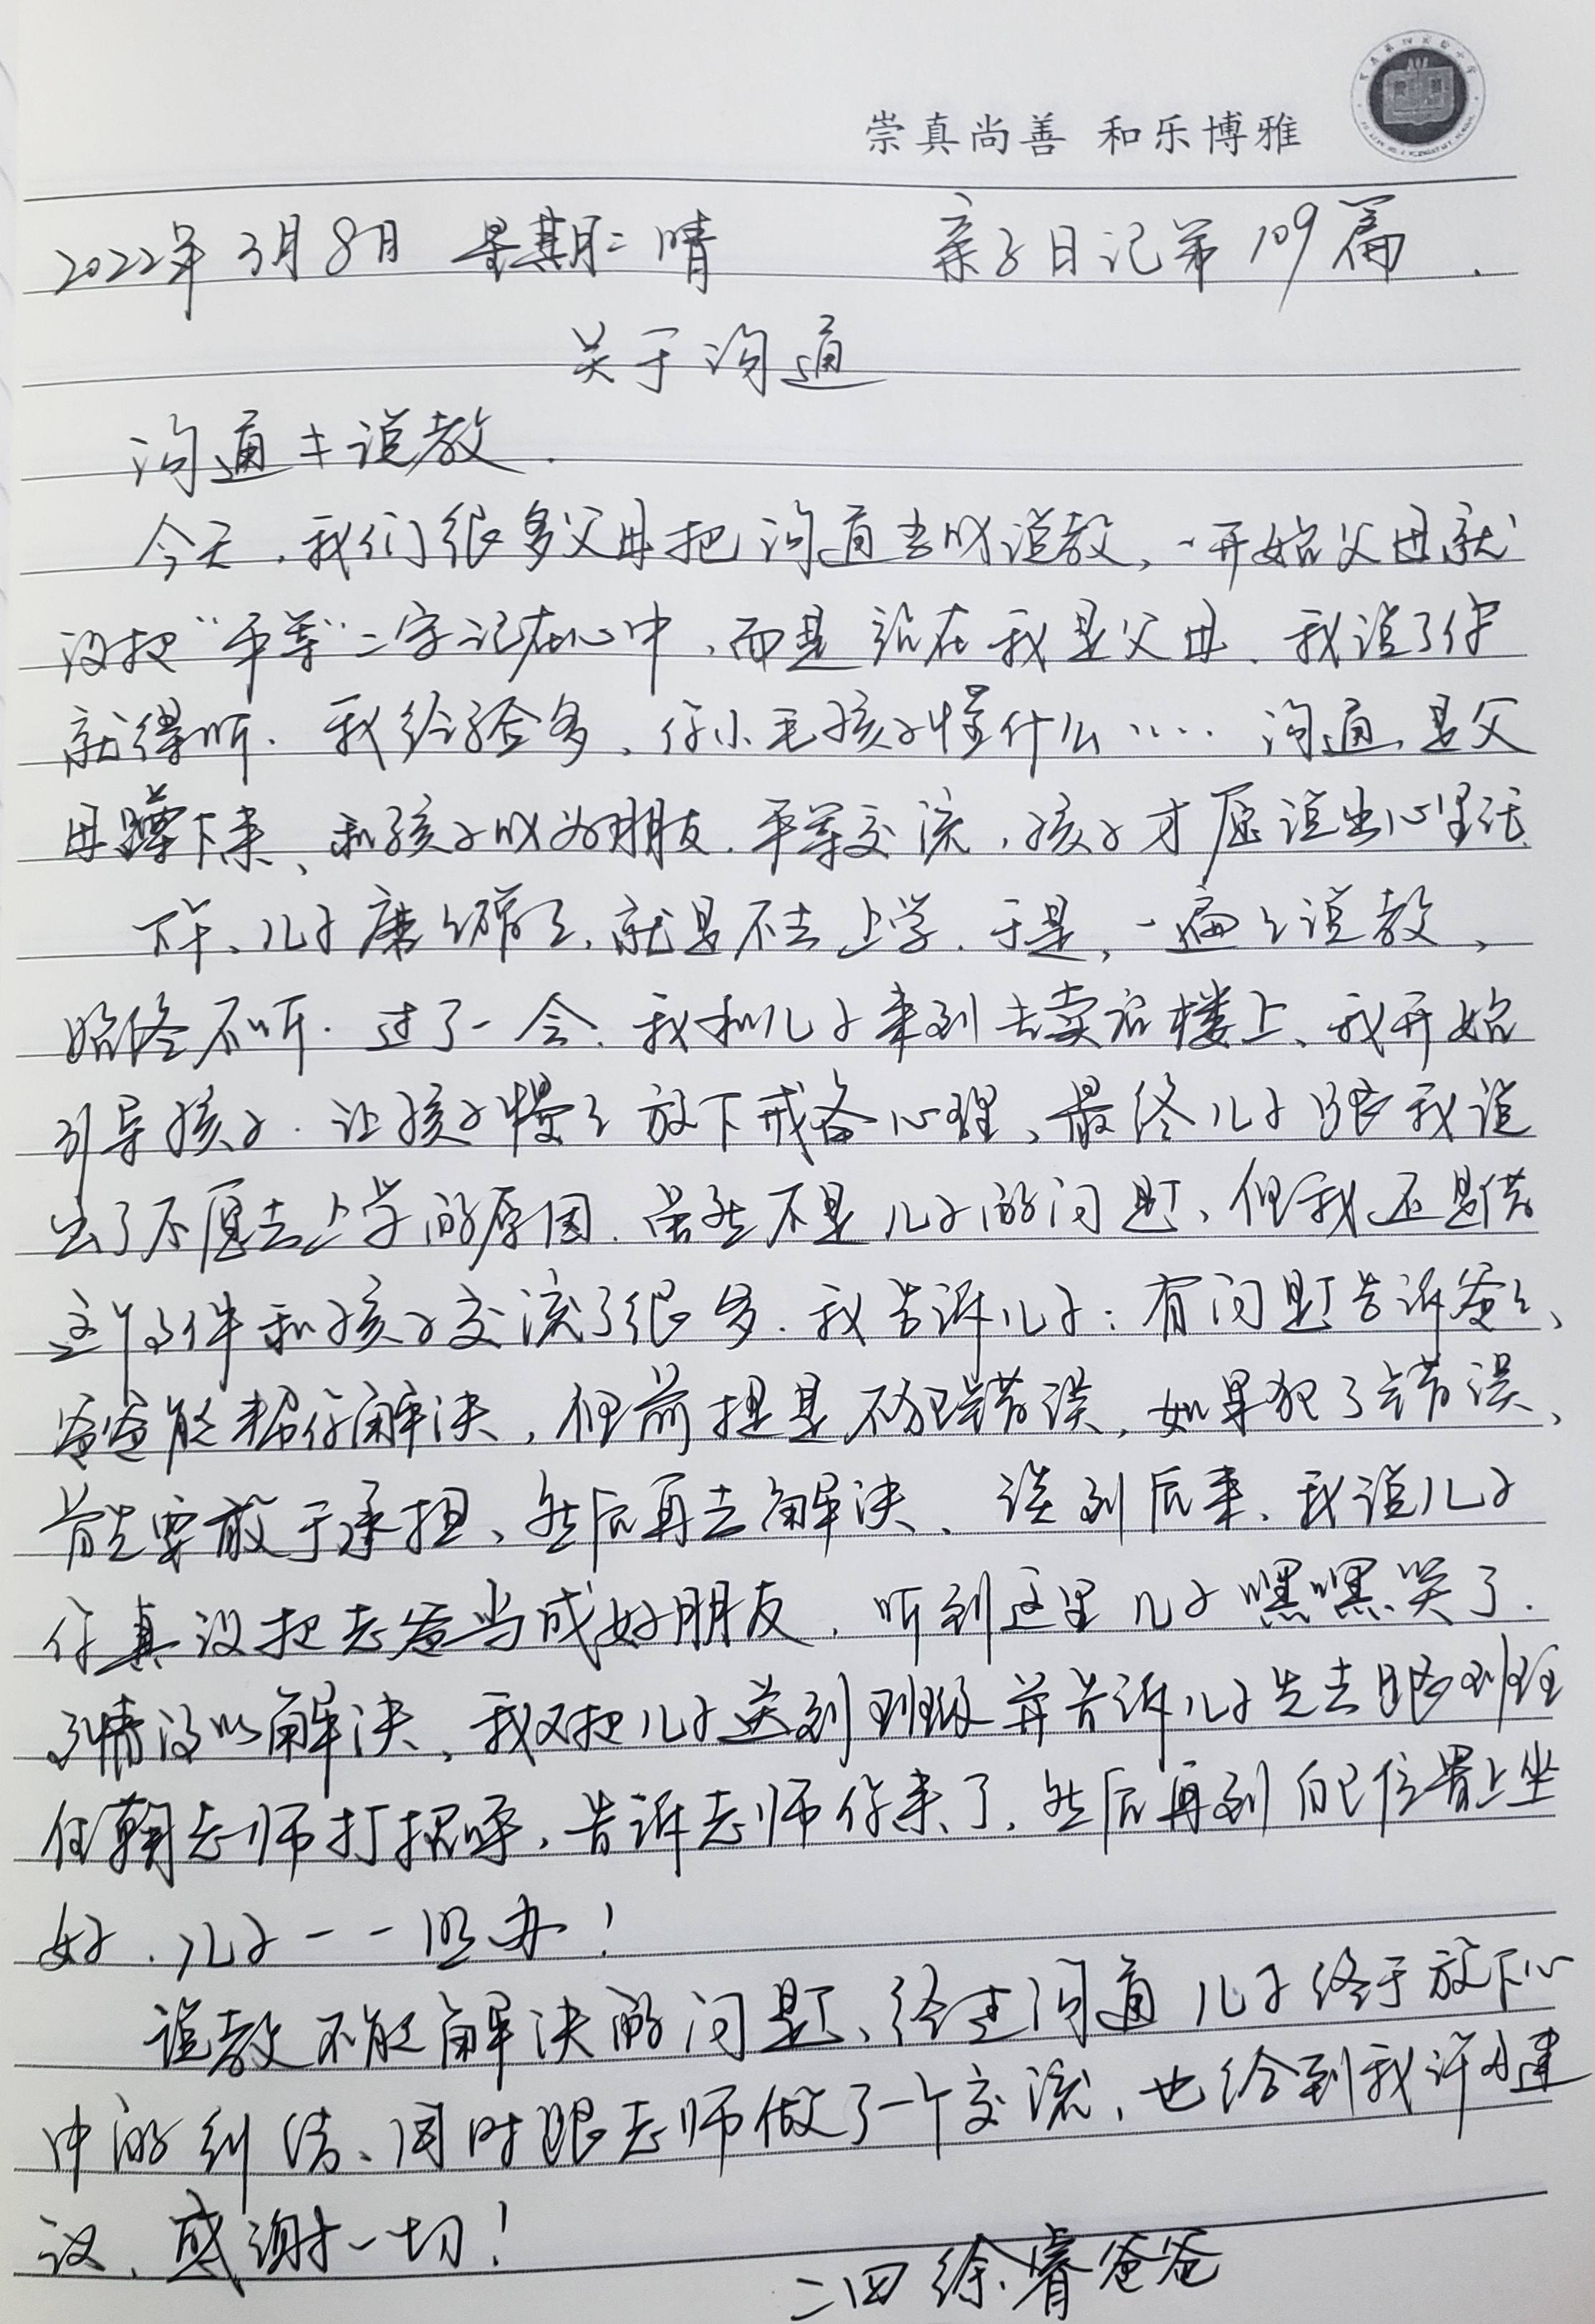 崇真尚善 和乐博雅
2022年3月8日 星期二 晴 亲子日记第109篇.
关于沟通
沟通≠说教.
今天,我们很多父母把沟通当成说教,一开始父母就
没把“平等”二字记在心中,而是站在我是父母、我说了你
就得听、我经验多、你小毛孩子懂什么…… 沟通,是父
母蹲下来、和孩子成为朋友、平等交流,孩子才愿说出心里话.
下午、儿子磨磨蹭蹭、就是不去上学、于是,一遍遍说教、
始终不听. 过了一会、我和儿子来到专卖店楼上、我开始
引导孩子、让孩子慢慢放下戒备心理、最终儿子跟我说
出了不愿去上学的原因、虽然不是儿子的问题、但我还是借
这个事件和孩子交流了很多. 我告诉儿子:有问题告诉爸爸、
爸爸能帮你解决,但前提是不犯错误,如果犯了错误、
首先要敢于承担、然后再去解决、谈到后来、我说儿子
你真没把老爸当成好朋友,听到这里儿子嘿嘿笑了.
事情得以解决、我又把儿子送到班级并告诉儿子先去跟班主
任韩老师打招呼,告诉老师你来了,然后再到自己位置上坐
好.儿子一一照办!
说教不能解决的问题、经过沟通儿子终于放下心
中的纠结、同时跟老师做了一个交流,也给到我许多建
议、感谢一切!
二四 徐睿爸爸